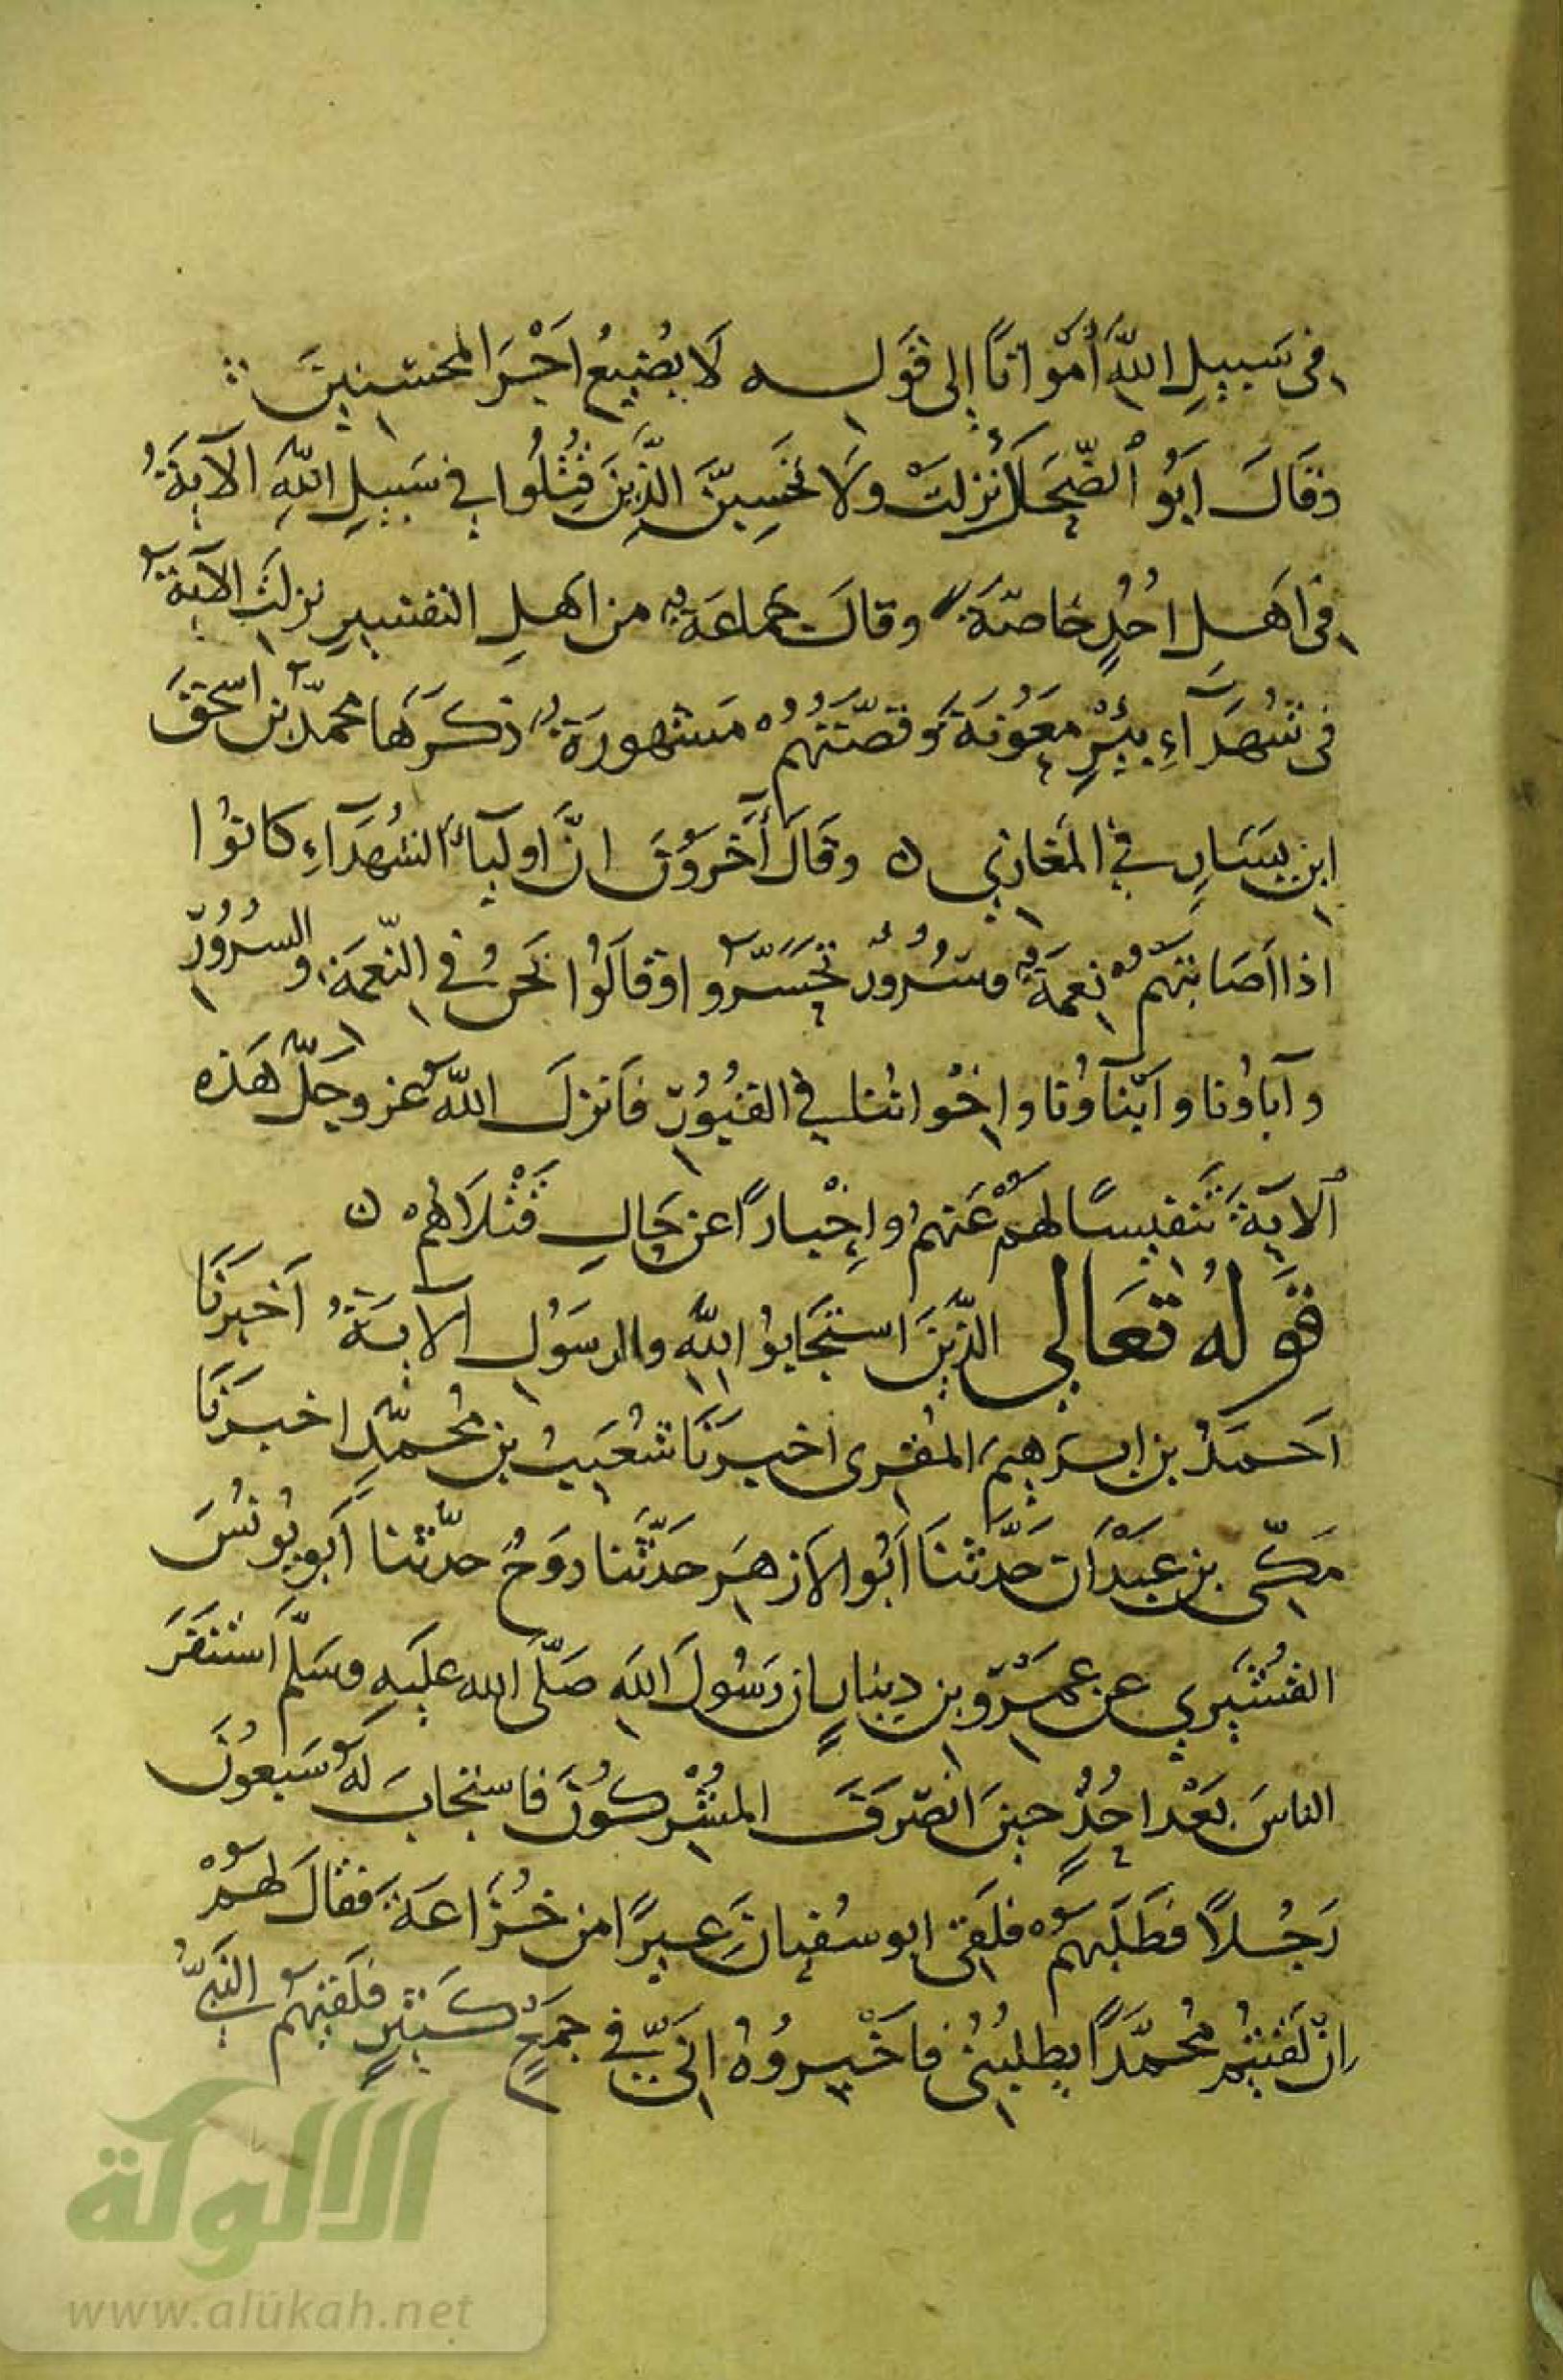 في سَبِيلِ اللَّهِ أَمْوَاتًا إلى قَوله لَا يُضِيعُ اَجْرَ المحْسِنِينَ
وقَالَ اَبُو الضُّحَى أُنْزِلَتْ وَلَا تَحْسِبَنَّ الَّذِينَ قُتِلُوا فِي سَبِيلِ اللَّهِ الآيَةُ
في اَهلِ احُدٍ خَاصّةً وقالَ جماعَةٌ من اهلِ التفسِيرِ نزلَتِ الآيَةُ
في شُهَدَآءِ بِئْرِ مَعُونَةَ وَقصّتُهُمْ مَشهورَةٌ ذكَرَهَا محمّدُ بْن اسحقَ
ابن يَسَارٍ في المَغازي ه وقَالَ آخَروُنَ انَّ اوليآءَ الشُهَدَآءِ كانوُا
اذا اَصَابتهُمْ نِعمَةٌ وسُرُورٌ تحَسَّرُوا وَقالَوُا نَحنُ في النّعمَةِ والسرُوُرِ
وآباؤُنا وَابْنآؤُنا وإخْوانُنا في القبُوُرِ فاَنزلَ اللَّهُ عز وجَلَّ هَذه
الآيَةَ تَنفيسًا لهمْ عَنهُمْ وإخْبارًا عن حَالِ قَتْلَاهُمْ ه
قَولهُ تعَالى الَّذِينَ استجَابوُا لِلَّهِ والرسَوُلِ الآيَةُ اَخبرَنَا
اَحمَدُ بن ابرهيم المُقرى اخبرَنَا شُعَيبُ بن مُحمَّدٍ اخبرَنَا
مَكّى بن عَبْدَان حَدَّثنَا اَبُو الاَزهَر حَدَّثَنا روَحُ حدّثنا اَبو يُونُسَ
القُشَيري عن عَمرْو بن دينارٍ ان رَسُولَ اللَّهِ صَلَّى الله عليَهِ وسَلَّم اَستنفَرَ
الناسَ بَعْد احُدٍ حينَ انصَرفَ المُشْركُونَ فاستجابَ لَهُ سَبعُونَ
رَجُلاً فطَلَبَهُمْ فلَقِى ابو سُفيانَ عِيرًا من خُزَاعَةَ فقالَ لهُمْ
إنْ لَقيتُم مُحمَّدًا يطلبُنى فاَخْبروُهُ انّي في جَمعٍ كَثيرٍ فلَقيَهُمُ النَّبيُّ
الألوكة
www.alukah.net